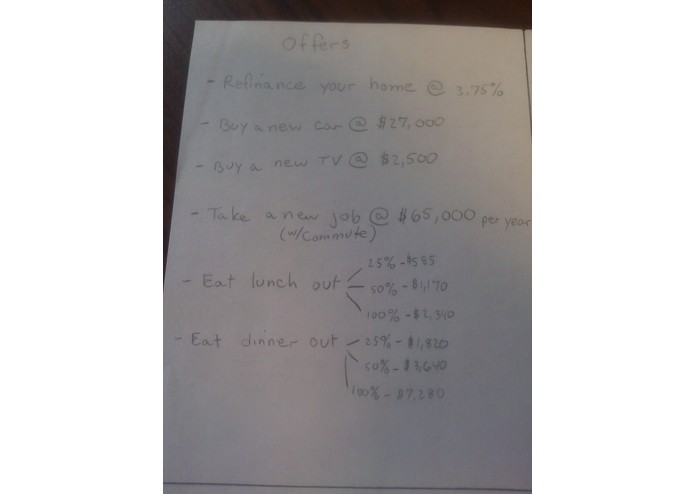 Offers
- Refinance your home @ 3.75%
- Buy a new car @ $27,000
- Buy a new TV @ $2,500
- Take a new job @ $65,000 per year
(w/Commute)
- Eat lunch out
25% - $585
50% - $1,170
100% - $2,340
- Eat dinner out
25% - $1,820
50% - $3,640
100% - $7,280